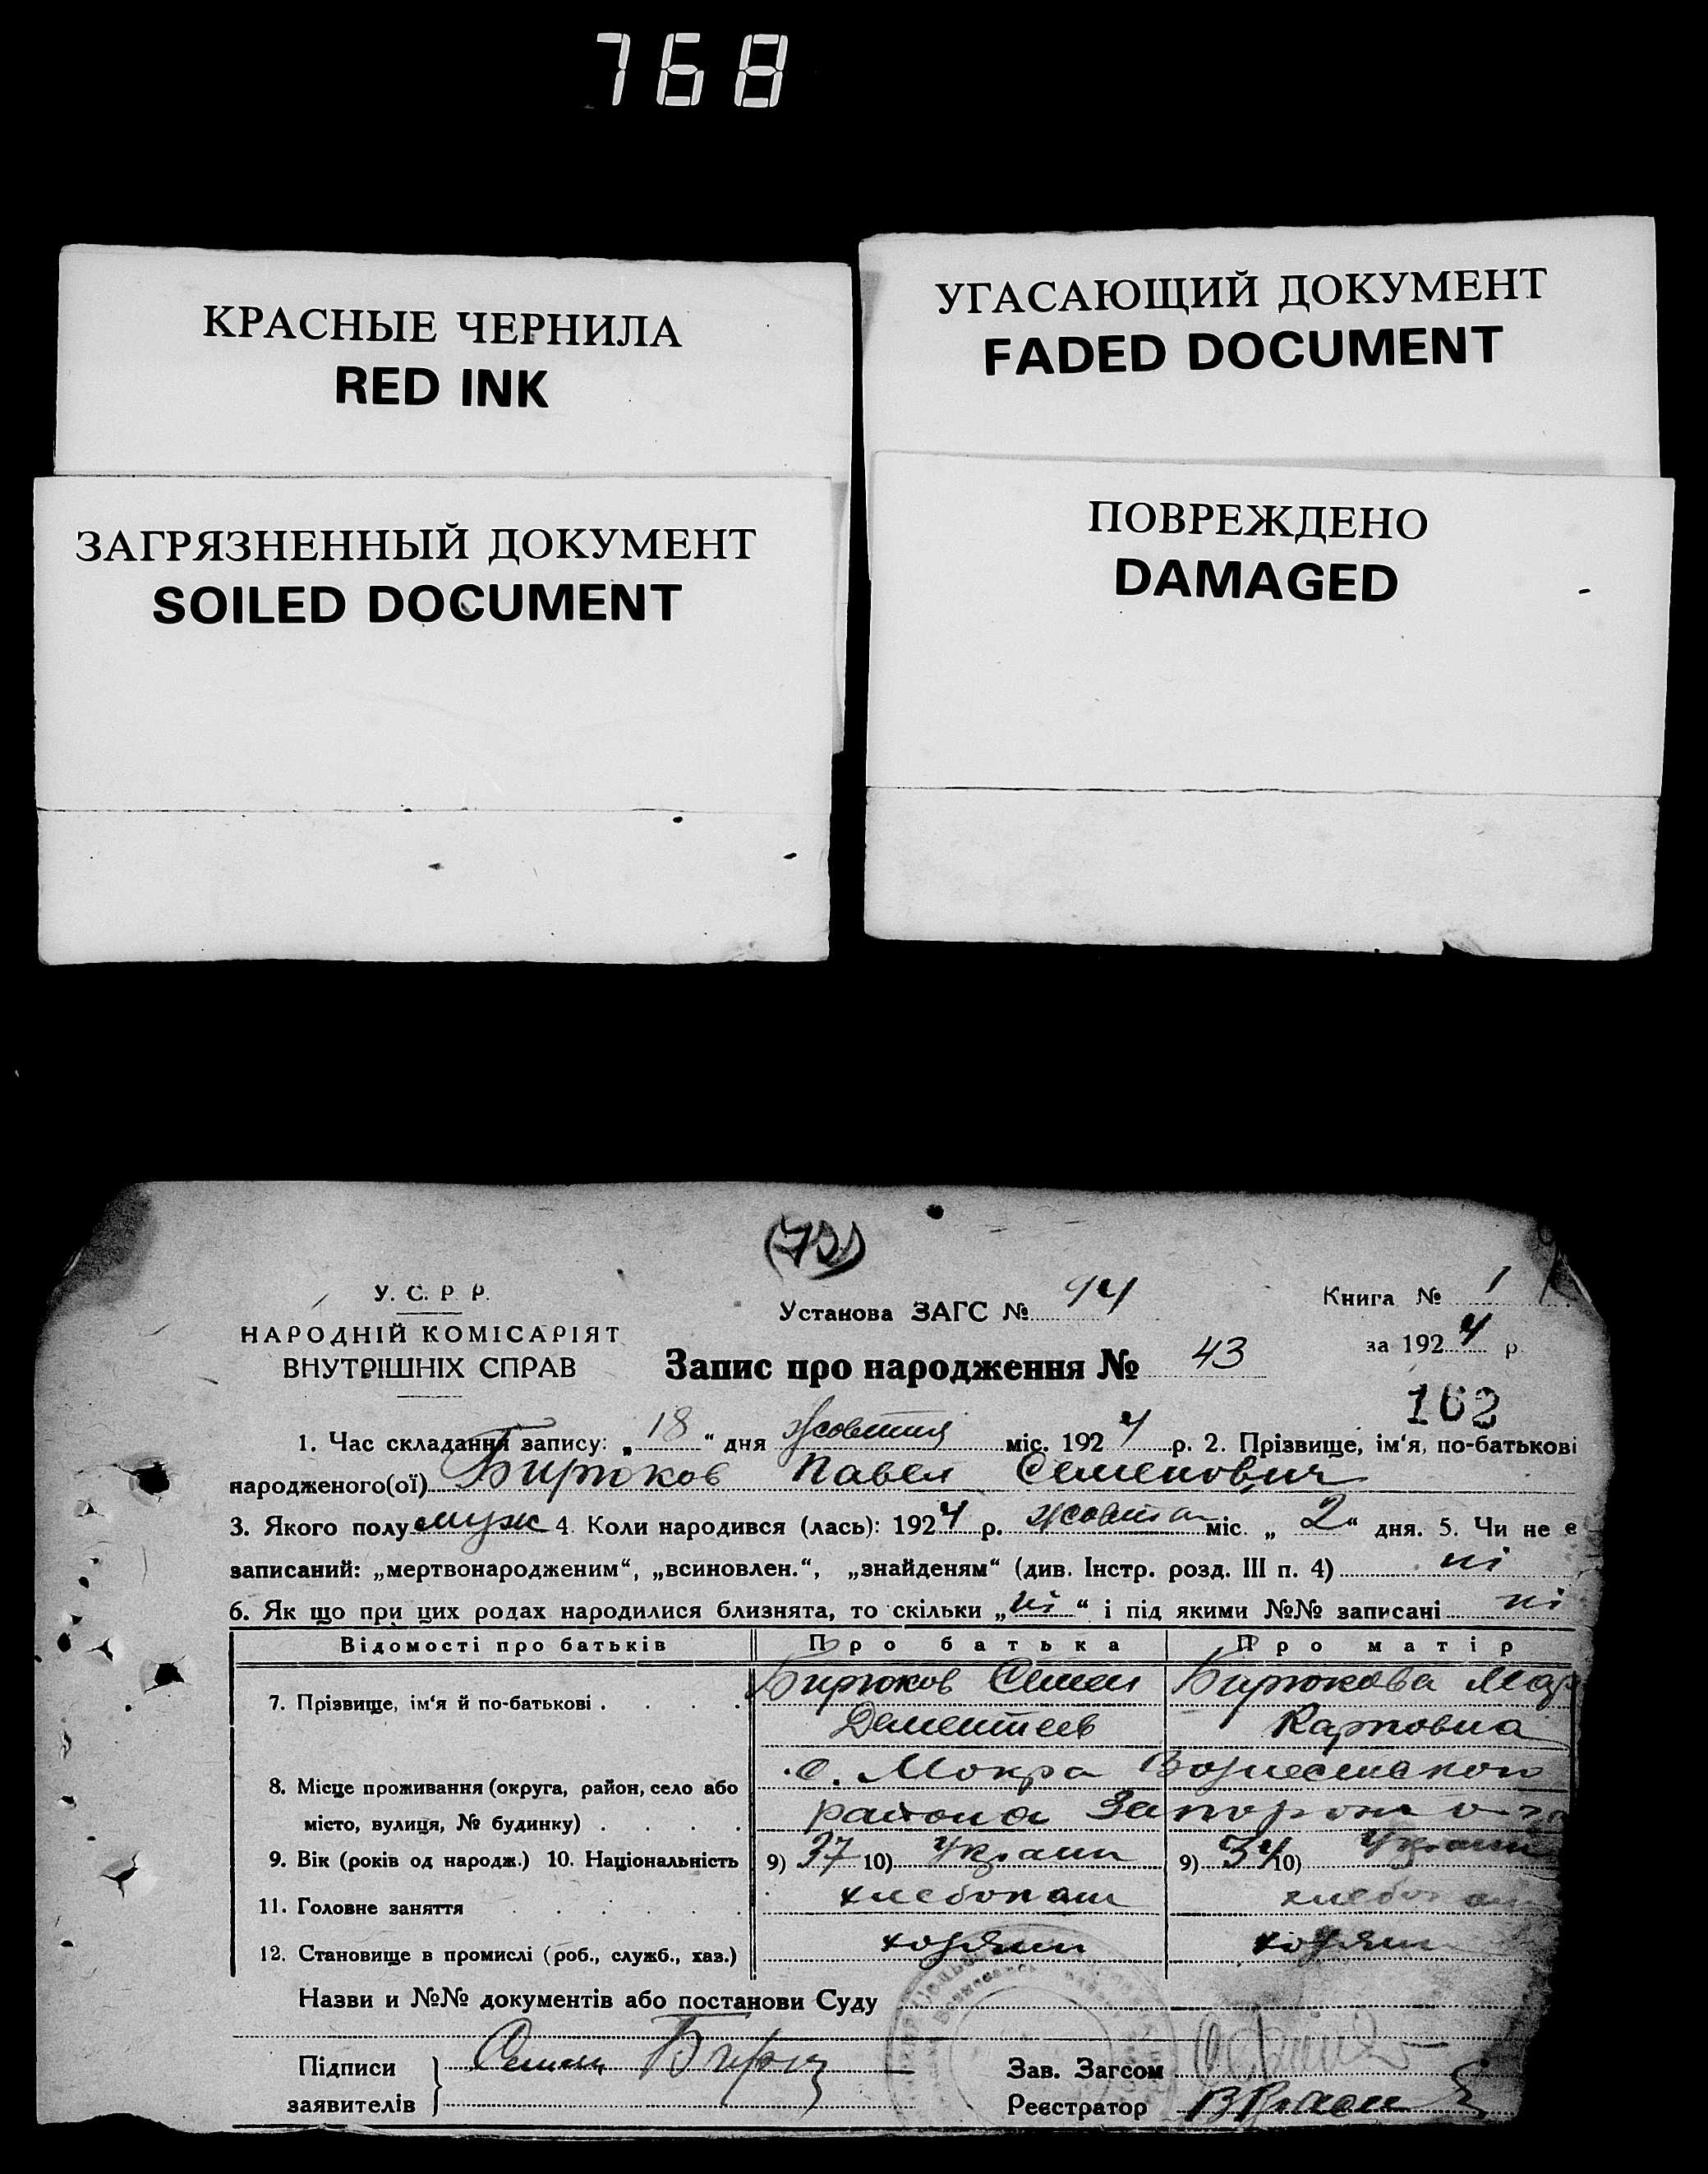 768
КРАСНЫЕ ЧЕРНИЛА
RED INK
УГАСАЮЩИЙ ДОКУМЕНТ
FADED DOCUMENT
ЗАГРЯЗНЕННЫЙ ДОКУМЕНТ
SOILED DOCUMENT
ПОВРЕЖДЕНО
DAMAGED
У. С. Р. Р.
НАРОДНІЙ КОМІСАРІЯТ
ВНУТРІШНІХ СПРАВ
Установа ЗАГС №
Книга № 1
за 1924 р.
Запис про народження № 43
162
1. Час складання запису: „18“ дня жовтня міс. 1924 р. 2. Прізвище, ім‘я, по-батькові
народженого(ої) Бирюков Павел Семенович
3. Якого полу муж 4. Коли народився (лась): 1924 р. жовтня міс. „2“ дня. 5. Чи не є
записаний: „мертвонародженим“, „всиновлен.“, „знайденям“ (див. Інстр. розд. III п. 4) ні
6. Як що при цих родах народилися близнята, то скільки „ні“ і під якими №№ записані ні
Відомості про батьків Про батька Про матір
7. Прізвище, ім‘я й по-батькові . . . . Бирюков Семен Бирюкова Мар
Дементеев Карповна
8. Місце проживання (округа, район, село або с. Мокра Вознесенского
місто, вулиця, № будинку) . . . . района
9. Вік (років од народж.) 10. Національність 9) 37 10) Україн 9) 34 10) Україн
11. Головне заняття хлебопаш хлебопаш
12. Становище в промислі (роб., служб., хаз.) хозяин хозяин
Назви и №№ документів або постанови Суду
Підписи Семен Зав. Загсом
заявителів Реєстратор